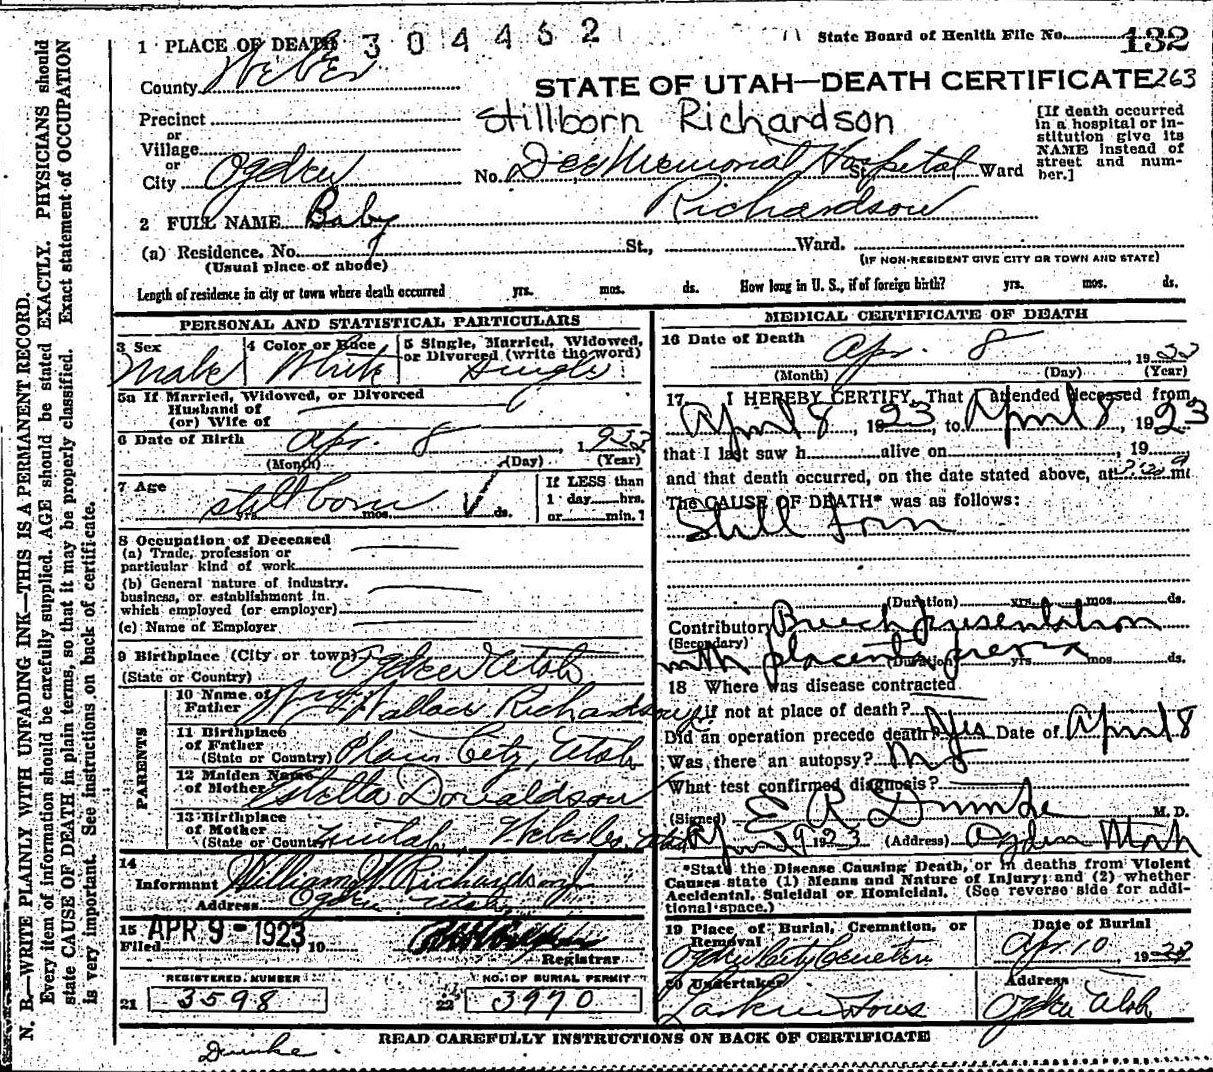 1 PLACE OF DEATH 304462 State Board of Health File No. 132
County Weber STATE OF UTAH—DEATH CERTIFICATE 263
Precinct Stillborn Richardson [If death occurred in a hospital or institution give its NAME instead of street and number.]
or
Village
or
City Ogden No. Dee Memorial Hospital St., Ward
2 FULL NAME Baby Richardson
(a) Residence. No. St., Ward.
(Usual place of abode) (IF NON-RESIDENT GIVE CITY OR TOWN AND STATE)
Length of residence in city or town where death occurred yrs. mos. ds. How long in U. S., if of foreign birth? yrs. mos. ds.
PERSONAL AND STATISTICAL PARTICULARS
3 Sex Male
4 Color or Race White
5 Single, Married, Widowed, or Divorced (write the word) Single
5a If Married, Widowed, or Divorced
Husband of
(or) Wife of
6 Date of Birth Apr. 8 1923
(Month) (Day) (Year)
7 Age stillborn
yrs. mos. ds.
If LESS than
1 day hrs.
or min.?
8 Occupation of Deceased
(a) Trade, profession or
particular kind of work
(b) General nature of industry,
business, or establishment in
which employed (or employer)
(c) Name of Employer
9 Birthplace (City or town) Ogden Utah
(State or Country)
PARENTS
10 Name of
Father Wm Wallace Richardson
11 Birthplace
of Father
(State or Country) Plain City, Utah
12 Maiden Name
of Mother Estella Donaldson
13 Birthplace
of Mother
(State or Country) Uintah, Weber Co. Utah
14
Informant William W Richardson
Address Ogden Utah
15
Filed APR 9 - 1923 19
Registrar
REGISTERED NUMBER NO. OF BURIAL PERMIT
21 3598 22 3970
MEDICAL CERTIFICATE OF DEATH
16 Date of Death Apr. 8 1923
(Month) (Day) (Year)
17 I HEREBY CERTIFY, That I attended deceased from
April 8, 1923, to April 8, 1923
that I last saw h alive on , 19
and that death occurred, on the date stated above, at m.
The CAUSE OF DEATH* was as follows:
Still born
(Duration) yrs. mos. ds.
Contributory Breech presentation
(Secondary)
with placenta previa (Duration) yrs. mos. ds.
18 Where was disease contracted
if not at place of death?
Did an operation precede death? Yes Date of April 8
Was there an autopsy? No
What test confirmed diagnosis?
(Signed) E R Dumke M. D.
Apr 9 1923 (Address) Ogden Utah
*State the Disease Causing Death, or in deaths from Violent
Causes state (1) Means and Nature of Injury; and (2) whether
Accidental, Suicidal or Homicidal. (See reverse side for additional space.)
19 Place of Burial, Cremation, or Removal Date of Burial
Ogden City Cemetery Apr. 10 1923
20 Undertaker Address
Larkin & Sons Ogden Utah
READ CAREFULLY INSTRUCTIONS ON BACK OF CERTIFICATE
Dumke
N. B.—WRITE PLAINLY WITH UNFADING INK—THIS IS A PERMANENT RECORD.
Every item of information should be carefully supplied. AGE should be stated EXACTLY. PHYSICIANS should
state CAUSE OF DEATH in plain terms, so that it may be properly classified. Exact statement of OCCUPATION
is very important. See instructions on back of certificate.